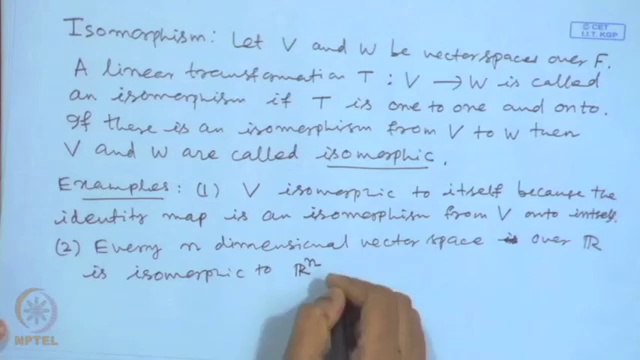 © CET
I.I.T. KGP
Isomorphism: Let V and W be vector spaces over F.
A linear transformation T : V → W is called
an isomorphism if T is one to one and onto.
If there is an isomorphism from V to W then
V and W are called isomorphic.
Examples: (1) V isomorphic to itself because the
identity map is an isomorphism from V onto intself.
(2) Every n dimensional vector space over ℝ
is isomorphic to ℝⁿ
NPTEL